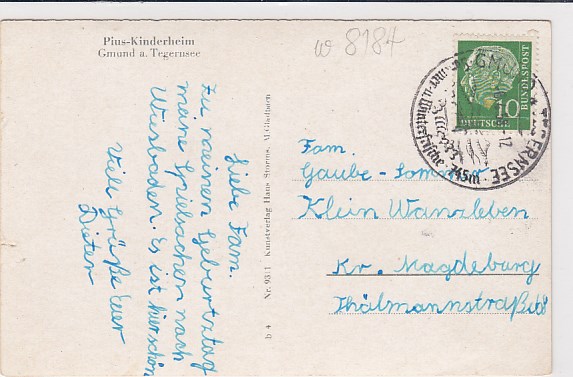 Pius-Kinderheim
Gmund a. Tegernsee
w 8184
Liebe Fam.
Zu meinen Geburtztag
meine Spielsachen nach
Wiesbaden. Es ist hier schön
Viele Grüße Euer
Dieter
b 4 Nr. 9311 Kunstverlag Hans Storms, M'Gladbach
10
DEUTSCHE
BUNDESPOST
GMUND
TEGERNSEE
745m
12
Fam.
Gaube-Sommer
Klein Wanzleben
Kr. Magdeburg
Thälmannstraße 68